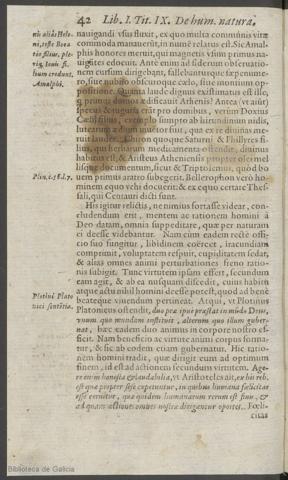 42 Lib. I. Tit. IX. De hum. natura,
nauigandi vsus fluxit, ex quo multa communis vitæ
commoda manauerūt, in numē relatus est. Sic Amal-
phis honores meruit, qui magnetis vsum primus na-
uigātes edocuit. Ante enim ad siderum obseruatio-
nem cursum dirigebant, fallebanturque sæpenume-
ro, siue nubilo obscuroque cælo, siue nontium op-
posito. Quanta laude dignus existimatus est ille,
q primus domos ædificauit Athenis? Antea (vt aiūt)
specus & tuguria erāt pro domibus, verùm Doxius
Cælij filius, exemplo sumpto ab hirundinum nidis,
lutearum ædium inuētor fuit, qua ex re diuinas me-
ruit laudes. Chiron quoque Saturni & Phillyres fi-
lius, qui herbarum medicamenta ostendit, diuinus
habitus est, & Aristeus Atheniensis propter olei mel
lisque documentum, sicut & Triptolemus, quòd bo
uem primus aratro subegerit. Bellerophon verò ho-
minem equo vehi docuerit: & ex equo certare Thes-
sali, qui Centauri dicti sunt.
His igitur relictis, ne nimius fortasse videar, con-
cludendum erit, mentem ac rationem homini à
Deo datam, omnia suppeditare, quæ per naturam
ei deesse videbantur. Nam cùm eadem rectè offi-
cio suo fungitur, libidinem coërcet, iracundiam
comprimit, voluptatem respuit, cupiditatem sedat,
& alias omnes animi perturbationes freno ratio-
nis subigit. Tunc virtutem ipsam essert, secundum
eam agit, & ab ea nusquam discedit, cuius habitu
atque actu nihil homini deesse potest, quod ad benè
beateque viuendum pertineat. Atqui, vt Plotinus
Platonicus ostendit, duo præ ipse præstat in mūdo Deus,
vnum quo mundum instituit, alterum quo illum guber-
nat, hæc eadem duo animus in corpore nostro ef-
ficit. Nam beneficio ac virtute animi corpus forma-
tur, & sic ab codem etiam gubernatur. Hic ratio-
nem homini tradit, quæ dirigit eum ad optimum
finem, id est ad actionem secundùm virtutem. Age-
re enim honesta & laudabilia, vt Aristoteles ait, ex his reb.
est quæ propter sese expetuntur, in quibus humana fœlicitas
esse cernitur, quæ quidem humanarum rerum est finis, &
ad quam actiones omnes nostræ dirigantur oportet. Fœli-
citas
Plin. c. 18. l. 7.
Plotini Plato
nici sentētia.
Biblioteca de Galicia